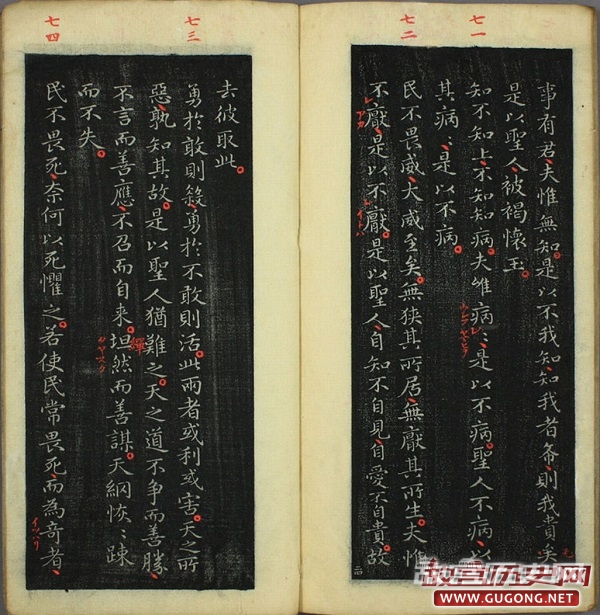 七一
七二
事有君夫惟無知是以不我知知我者希則我貴矣
是以聖人被褐懷玉
知不知上不知知病夫唯病〻是以不病聖人不病以
其病〻是以不病
民不畏威大威至矣無狹其所居無厭其所生夫惟
不厭是以不厭是以聖人自知不自見自愛不自貴故
七三
七四
去彼取此
勇於敢則殺勇於不敢則活此兩者或利或害天之所
惡孰知其故是以聖人猶難之天之道不争而善勝
不言而善應不召而自来坦然而善謀天網恢〻踈
繟
而不失
民不畏死奈何以死懼之若使民常畏死而為奇者
イツハリ
故宫历史网
WWW.GUGONG.NET